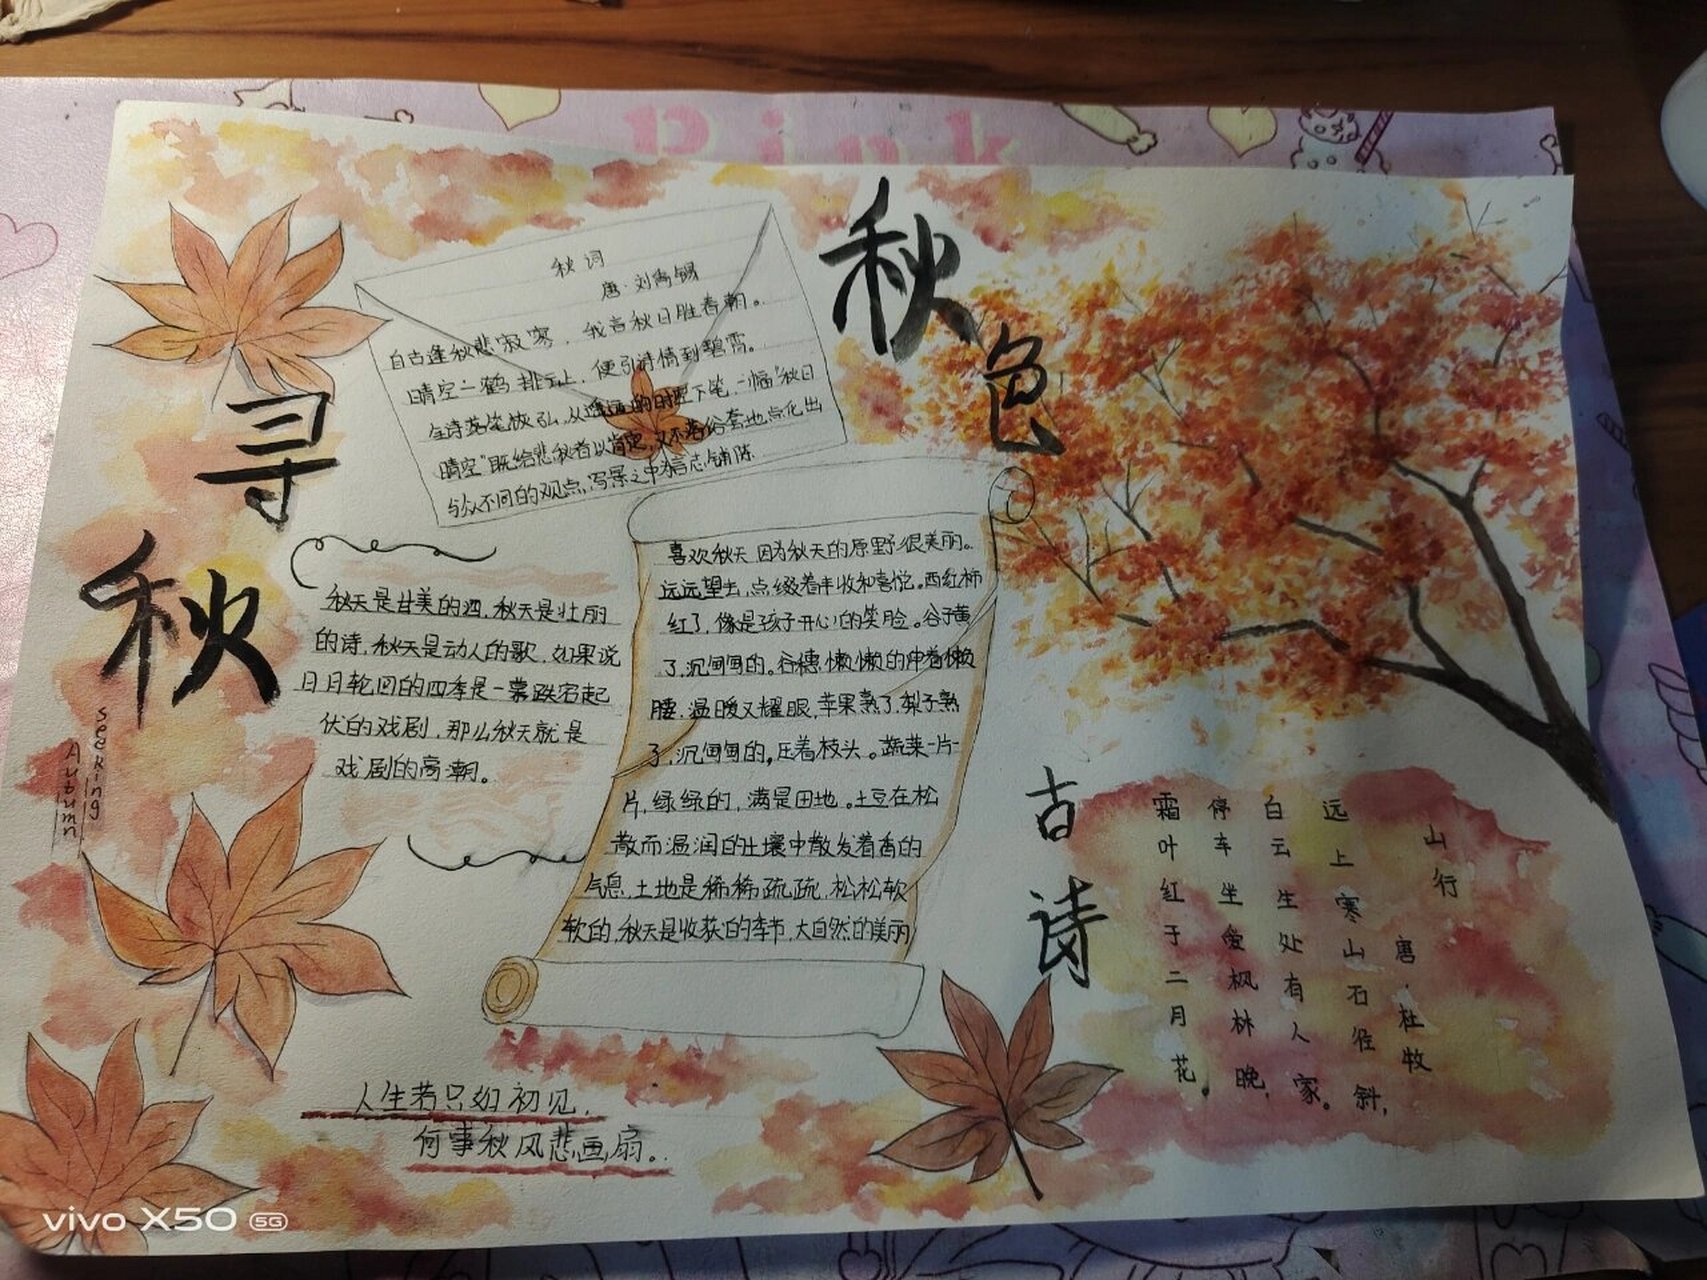 寻
秋
seeking
Autumn
秋词
唐·刘禹锡
自古逢秋悲寂寥，我言秋日胜春朝。
晴空一鹤排云上，便引诗情到碧霄。
全诗落笔恢弘,从遥远的时空下笔,一幅"秋日
晴空"既给悲秋者以肯定,又不落俗套地点化出
与众不同的观点,写景之中为言志铺陈
秋天是甘美的酒,秋天是壮丽
的诗,秋天是动人的歌,如果说
日月轮回的四季是一篇跌宕起
伏的戏剧,那么秋天就是
戏剧的高潮。
喜欢秋天,因为秋天的原野很美丽。
远远望去,点缀着丰收和喜悦。西红柿
红了,像是孩子开心的笑脸。谷子黄
了,沉甸甸的。谷穗懒懒的伸着懒
腰,温暖又耀眼,苹果熟了,梨子熟
了,沉甸甸的,压着枝头。蔬菜一片一
片,绿绿的,满是田地。土豆在松
散而温润的土壤中散发着香的
气息,土地是稀稀疏疏,松松软
软的,秋天是收获的季节,大自然的美丽
人生若只如初见,
何事秋风悲画扇。
秋
色
古
诗
山行
唐·杜牧
远上寒山石径斜,
白云生处有人家。
停车坐爱枫林晚,
霜叶红于二月花。
vivo X50 5G